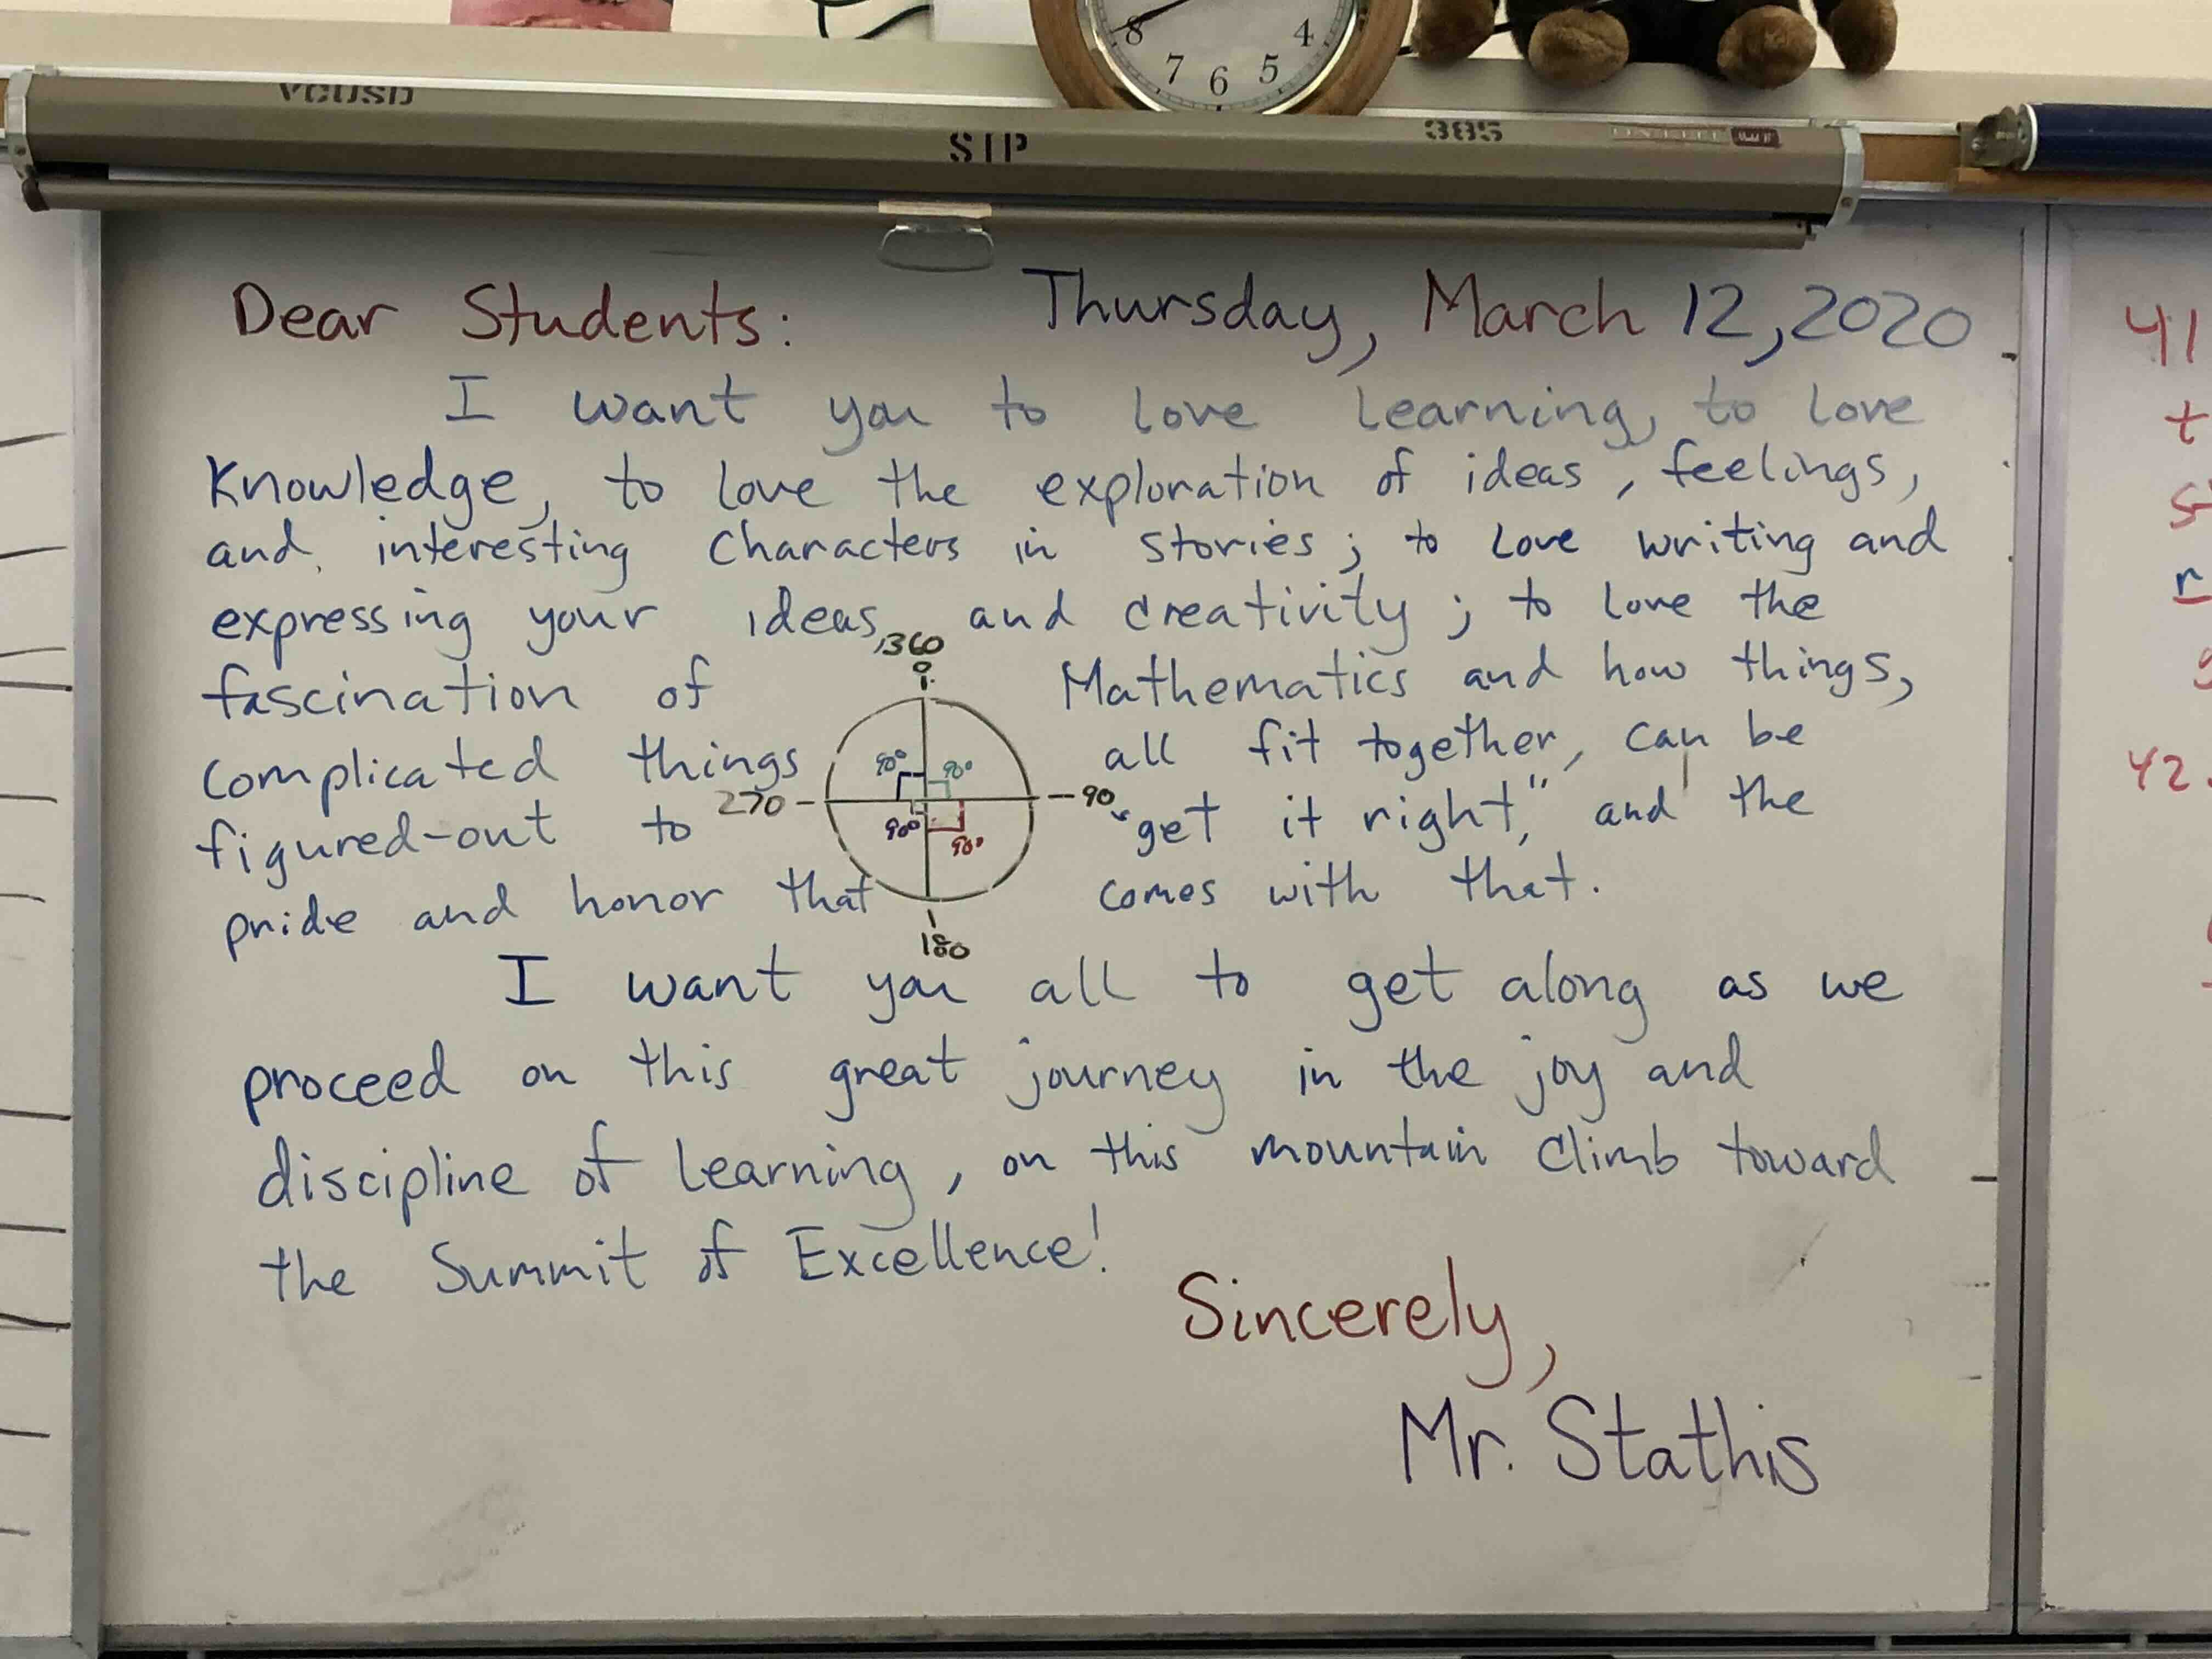 8 7 6 5 4
VCUSD
STP
385
Dear Students: Thursday, March 12, 2020
I want you to love learning, to love
Knowledge, to love the exploration of ideas, feelings,
and interesting characters in stories; to love writing and
expressing your ideas, and creativity; to love the
fascination of Mathematics and how things,
complicated things all fit together, can be
figured-out to "get it right," and the
pride and honor that comes with that.
360
0
90° 90°
270 90
90° 90°
180
I want you all to get along as we
proceed on this great journey in the joy and
discipline of learning, on this mountain climb toward
the Summit of Excellence!
Sincerely,
Mr. Stathis
41
t
r
42.